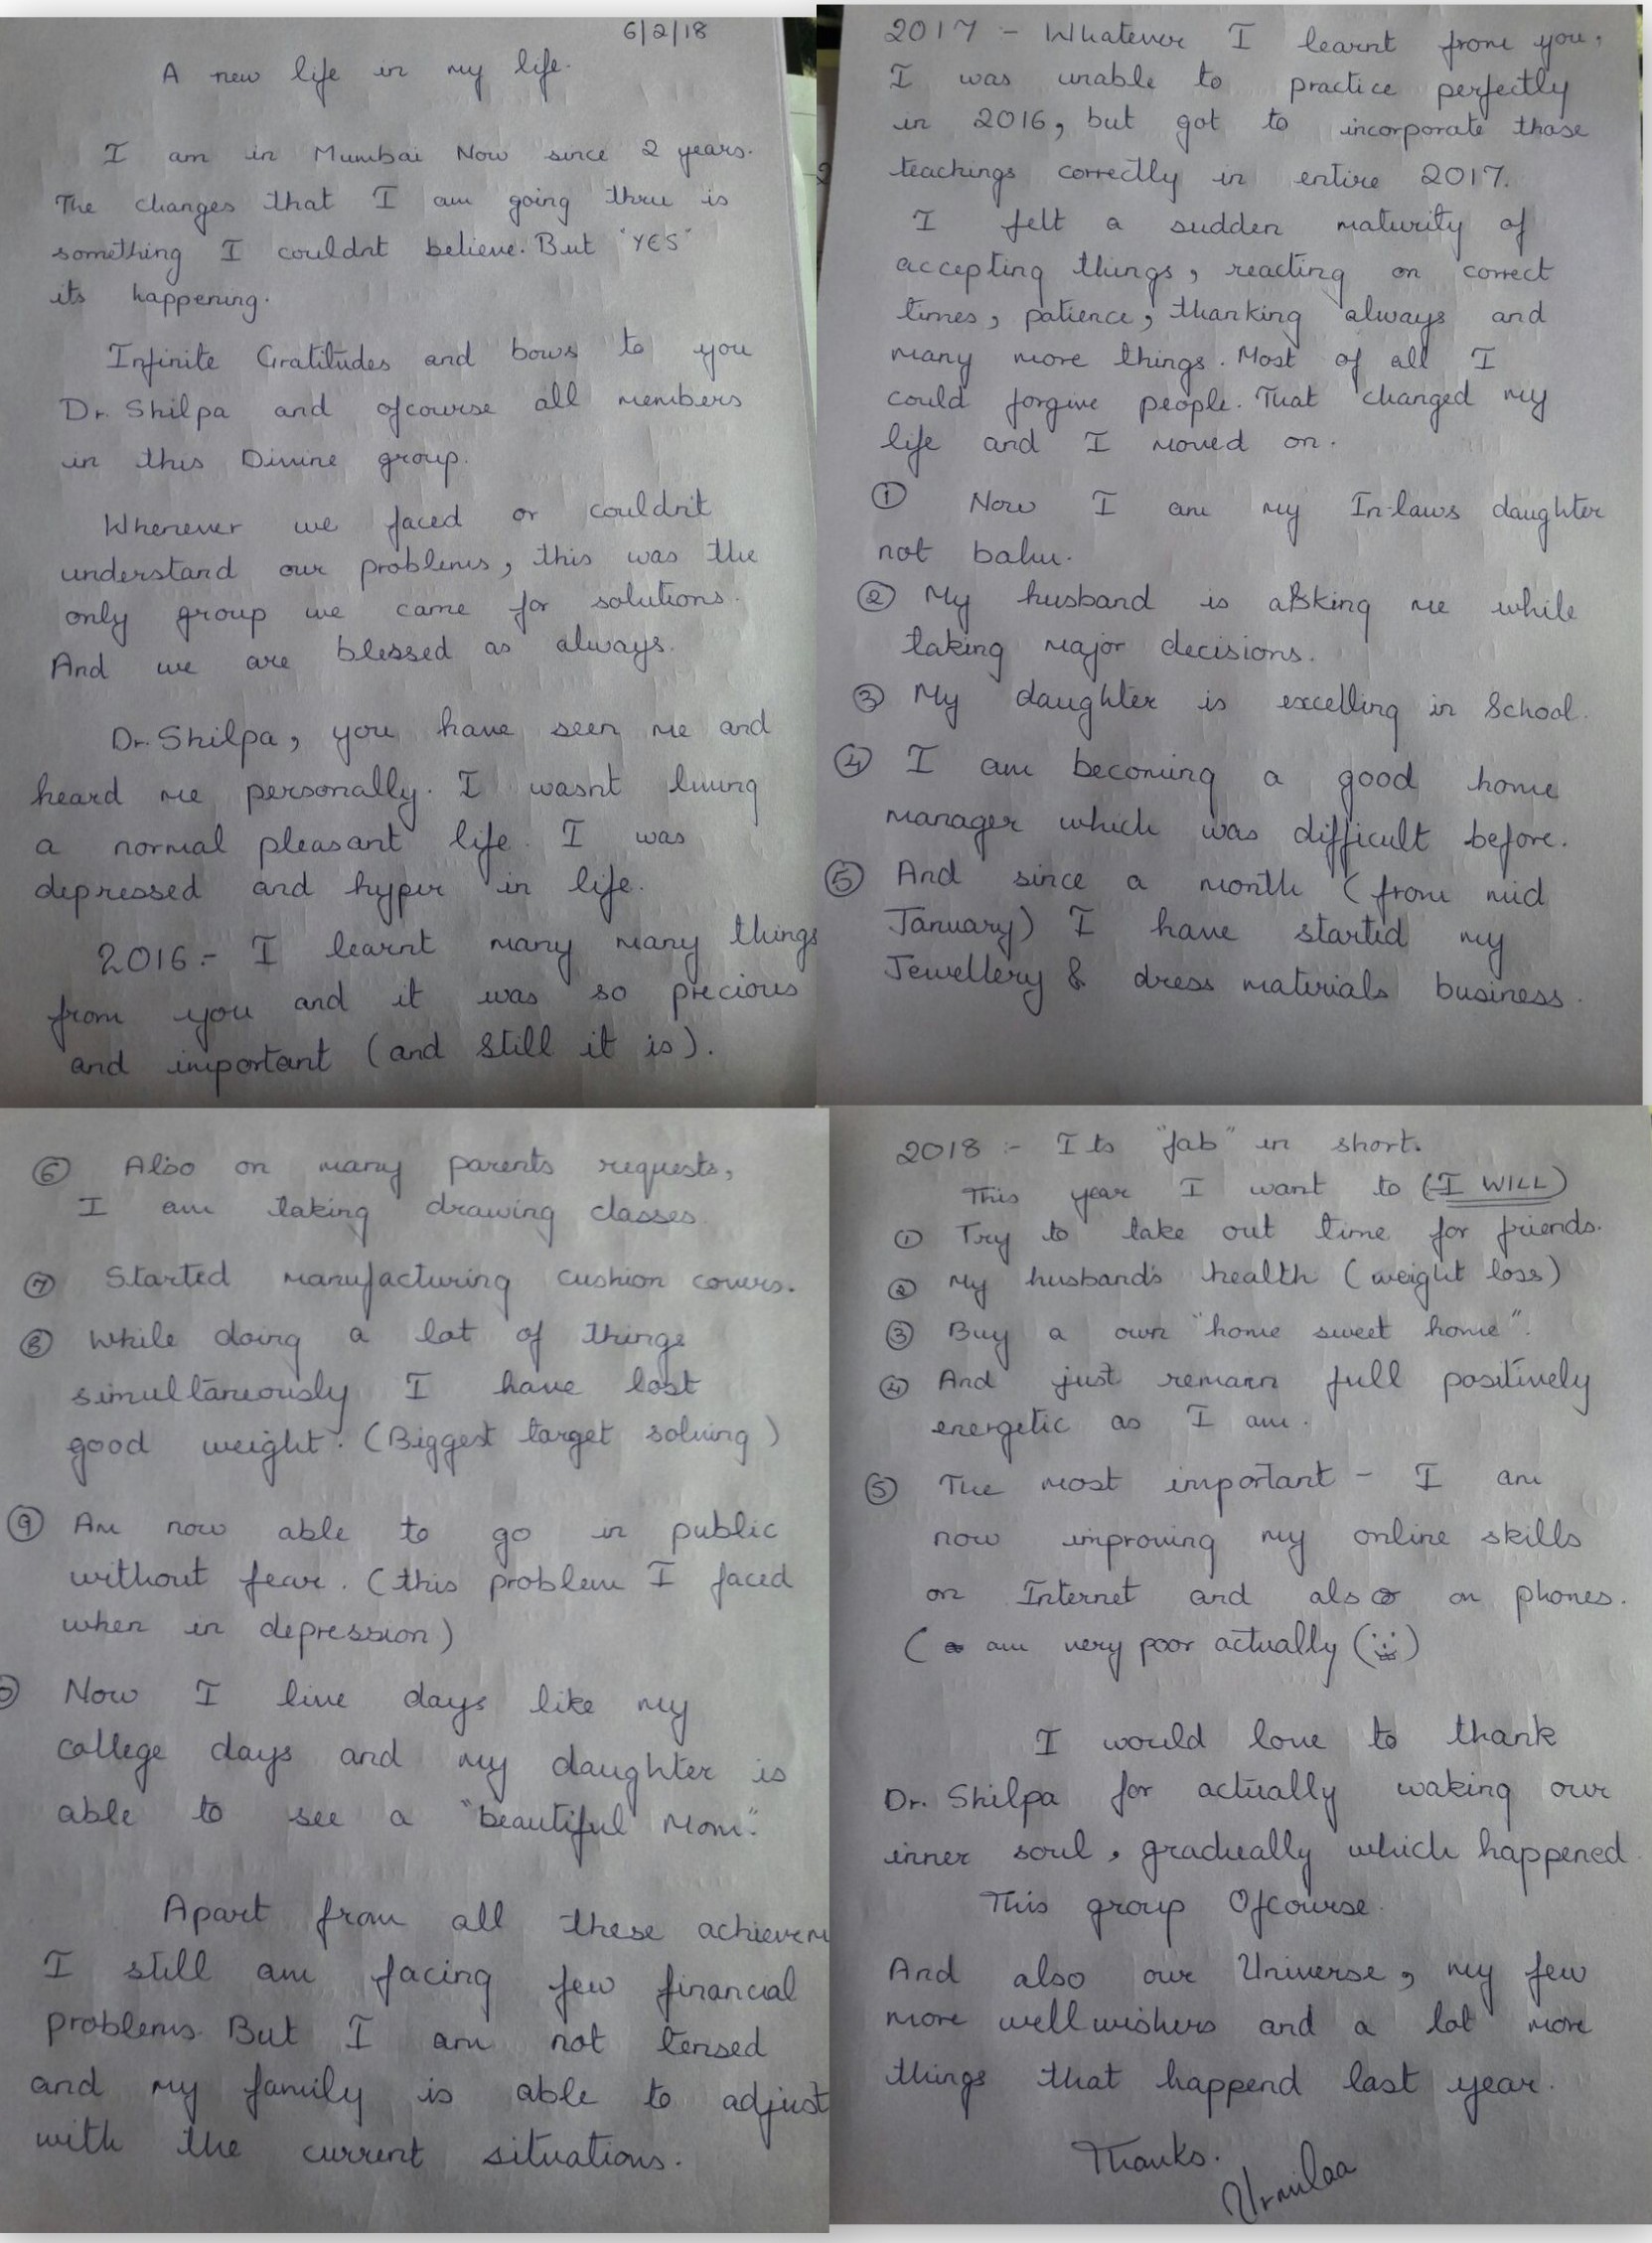 6/2/18
A new life in my life.
I am in Mumbai Now since 2 years.
The changes that I am going thru is
something I couldnt believe. But "YES"
its happening.
Infinite Gratitudes and bows to you
Dr. Shilpa and ofcourse all members
in this Divine group.
Whenever we faced or couldn't
understand our problems, this was the
only group we came for solutions.
And we are blessed as always.
Dr. Shilpa, you have seen me and
heard me personally. I wasnt living
a normal pleasant life. I was
depressed and hyper in life.
2016 :- I learnt many many things
from you and it was so precious
and important (and still it is).
2017 - Whatever I learnt from you,
I was unable to practice perfectly
in 2016, but got to incorporate those
teachings correctly in entire 2017.
I felt a sudden maturity of
accepting things, reacting on correct
times, patience, thanking always and
many more things. Most of all I
could forgive people. That changed my
life and I moved on.
① Now I am my In-laws daughter
not bahu.
② My husband is asking me while
taking major decisions.
③ My daughter is excelling in School.
④ I am becoming a good home
manager which was difficult before.
⑤ And since a month (from mid
January) I have started my
Jewellery & dress materials business.
⑥ Also on many parents requests,
I am taking drawing classes.
⑦ Started manufacturing cushion covers.
⑧ While doing a lot of things
simultaneously I have lost
good weight. (Biggest target solving)
⑨ Am now able to go in public
without fear. (this problem I faced
when in depression)
Now I live days like my
college days and my daughter is
able to see a "beautiful Mom".
Apart from all these achievem
I still am facing few financial
problems. But I am not tensed
and my family is able to adjust
with the current situations.
2018 :- Its "fab" in short.
This year I want to (I WILL)
① Try to take out time for friends.
② My husband's health (weight loss)
③ Buy a own "home sweet home".
④ And just remain full positively
energetic as I am.
⑤ The most important - I am
now improving my online skills
on Internet and also on phones.
(am very poor actually (☺)
I would love to thank
Dr. Shilpa for actually waking our
inner soul, gradually which happened
This group Ofcourse.
And also our Universe, my few
more wellwishers and a lot more
things that happend last year.
Thanks.
Urmilaa